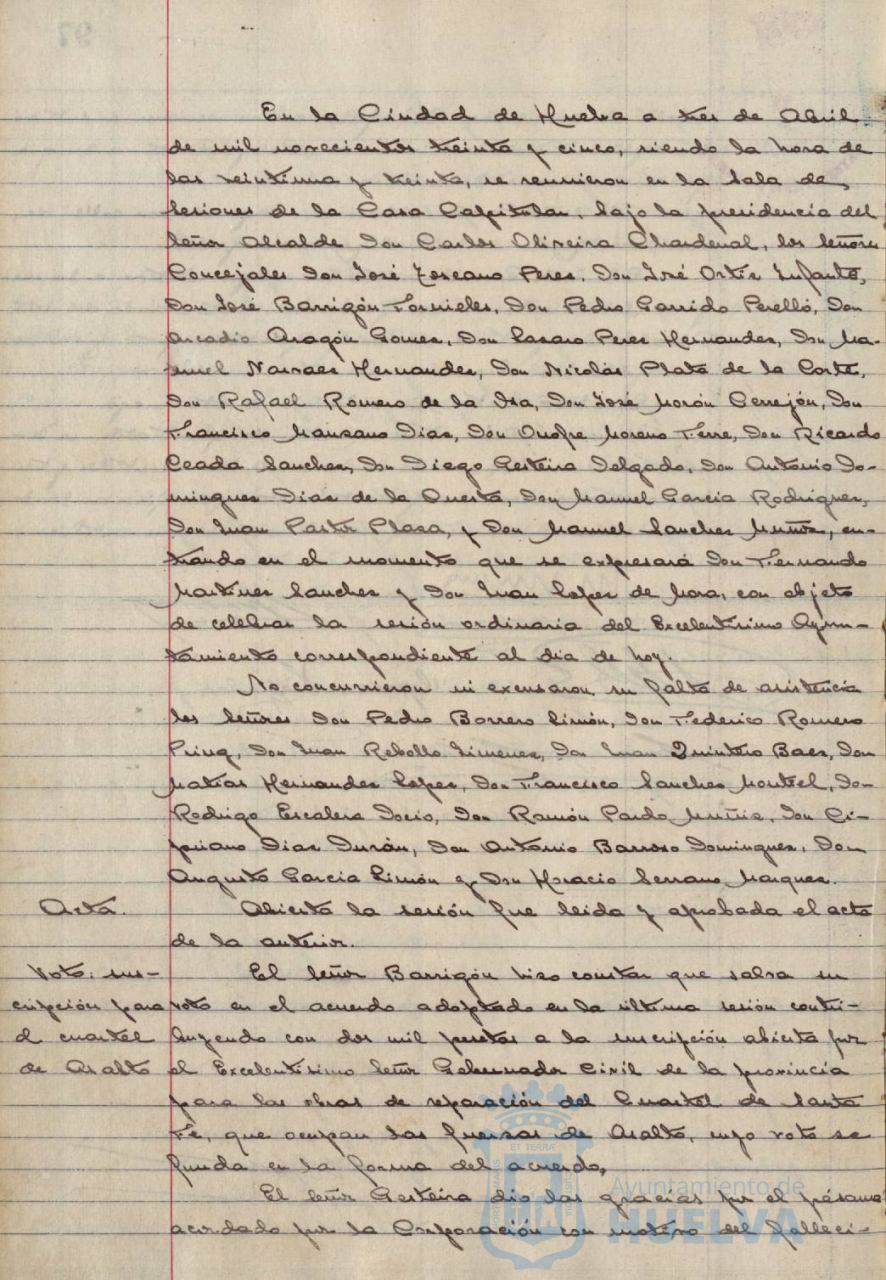 En la Ciudad de Huelva a tres de Abril
de mil novecientos treinta y cinco, siendo la hora de
las veintiuna y treinta, se reunieron en la Sala de
Sesiones de la Casa Capitular, bajo la presidencia del
Señor Alcalde Don Carlos Oliveira Chardenal, los Señores
Concejales Don José Toscano Peres, Don José Ortiz Infante,
Don José Barrigón Fornieles, Don Pedro Garrido Perelló, Don
Arcadio Aragón Gomes, Don Lasaro Peres Hernandes, Don Ma-
nuel Narvaes Hernandes, Don Nicolás Plata de la Corte,
Don Rafael Romero de la Osa, Don José Morón Cerrejón, Don
Francisco Mansano Dias, Don Onofre Moreno Ferre, Don Ricardo
Ceada Sanches, Don Diego Gesteira Delgado, Don Antonio Do-
mingues Dias de la Questa, Don Manuel Garcia Rodrigues,
Don Juan Pastor Plasa, y Don Manuel Sanches Muños, en-
trando en el momento que se expresará Don Fernando
Martines Sanches y Don Juan Lopes de Mora, con objeto
de celebrar la sesión ordinaria del Excelentisimo Ayun-
tamiento correspondiente al dia de hoy.
No concurrieron ni excusaron su falta de asistencia
los Señores Don Pedro Borrero Limón, Don Federico Romero
Don Juan Rebollo Jimenes, Don Juan Quintero Baes, Don
Matias Hernandes Lopes, Don Francisco Sanches Montiel, Do-
Rodrigo Escalera Docio, Don Ramón Pardo Muñis, Don Ci-
priano Dias Durán, Don Antonio Barroso Domingues, Don
Augusto Garcia Limón y Don Horacio Serrano Marques.
Acta.
Abierta la sesión fue leida y aprobada el acta
de la anterior.
Voto: sus-
cripción para
el cuartel
de Asalto
El Señor Barrigón hiso constar que salva su
voto en el acuerdo adoptado en la última sesión contri-
buyendo con dos mil pesetas a la suscripción abierta por
el Excelentisimo Señor Gobernador Civil de la provincia
para las obras de reparación del Cuartel de Santa
Fé, que ocupan las fuersas de Asalto, cuyo voto se
funda en la forma del acuerdo,
El Señor Gesteira dio las gracias por el pésame
acordado por la Corporación con motivo del falleci-
Ayuntamiento de
HUELVA